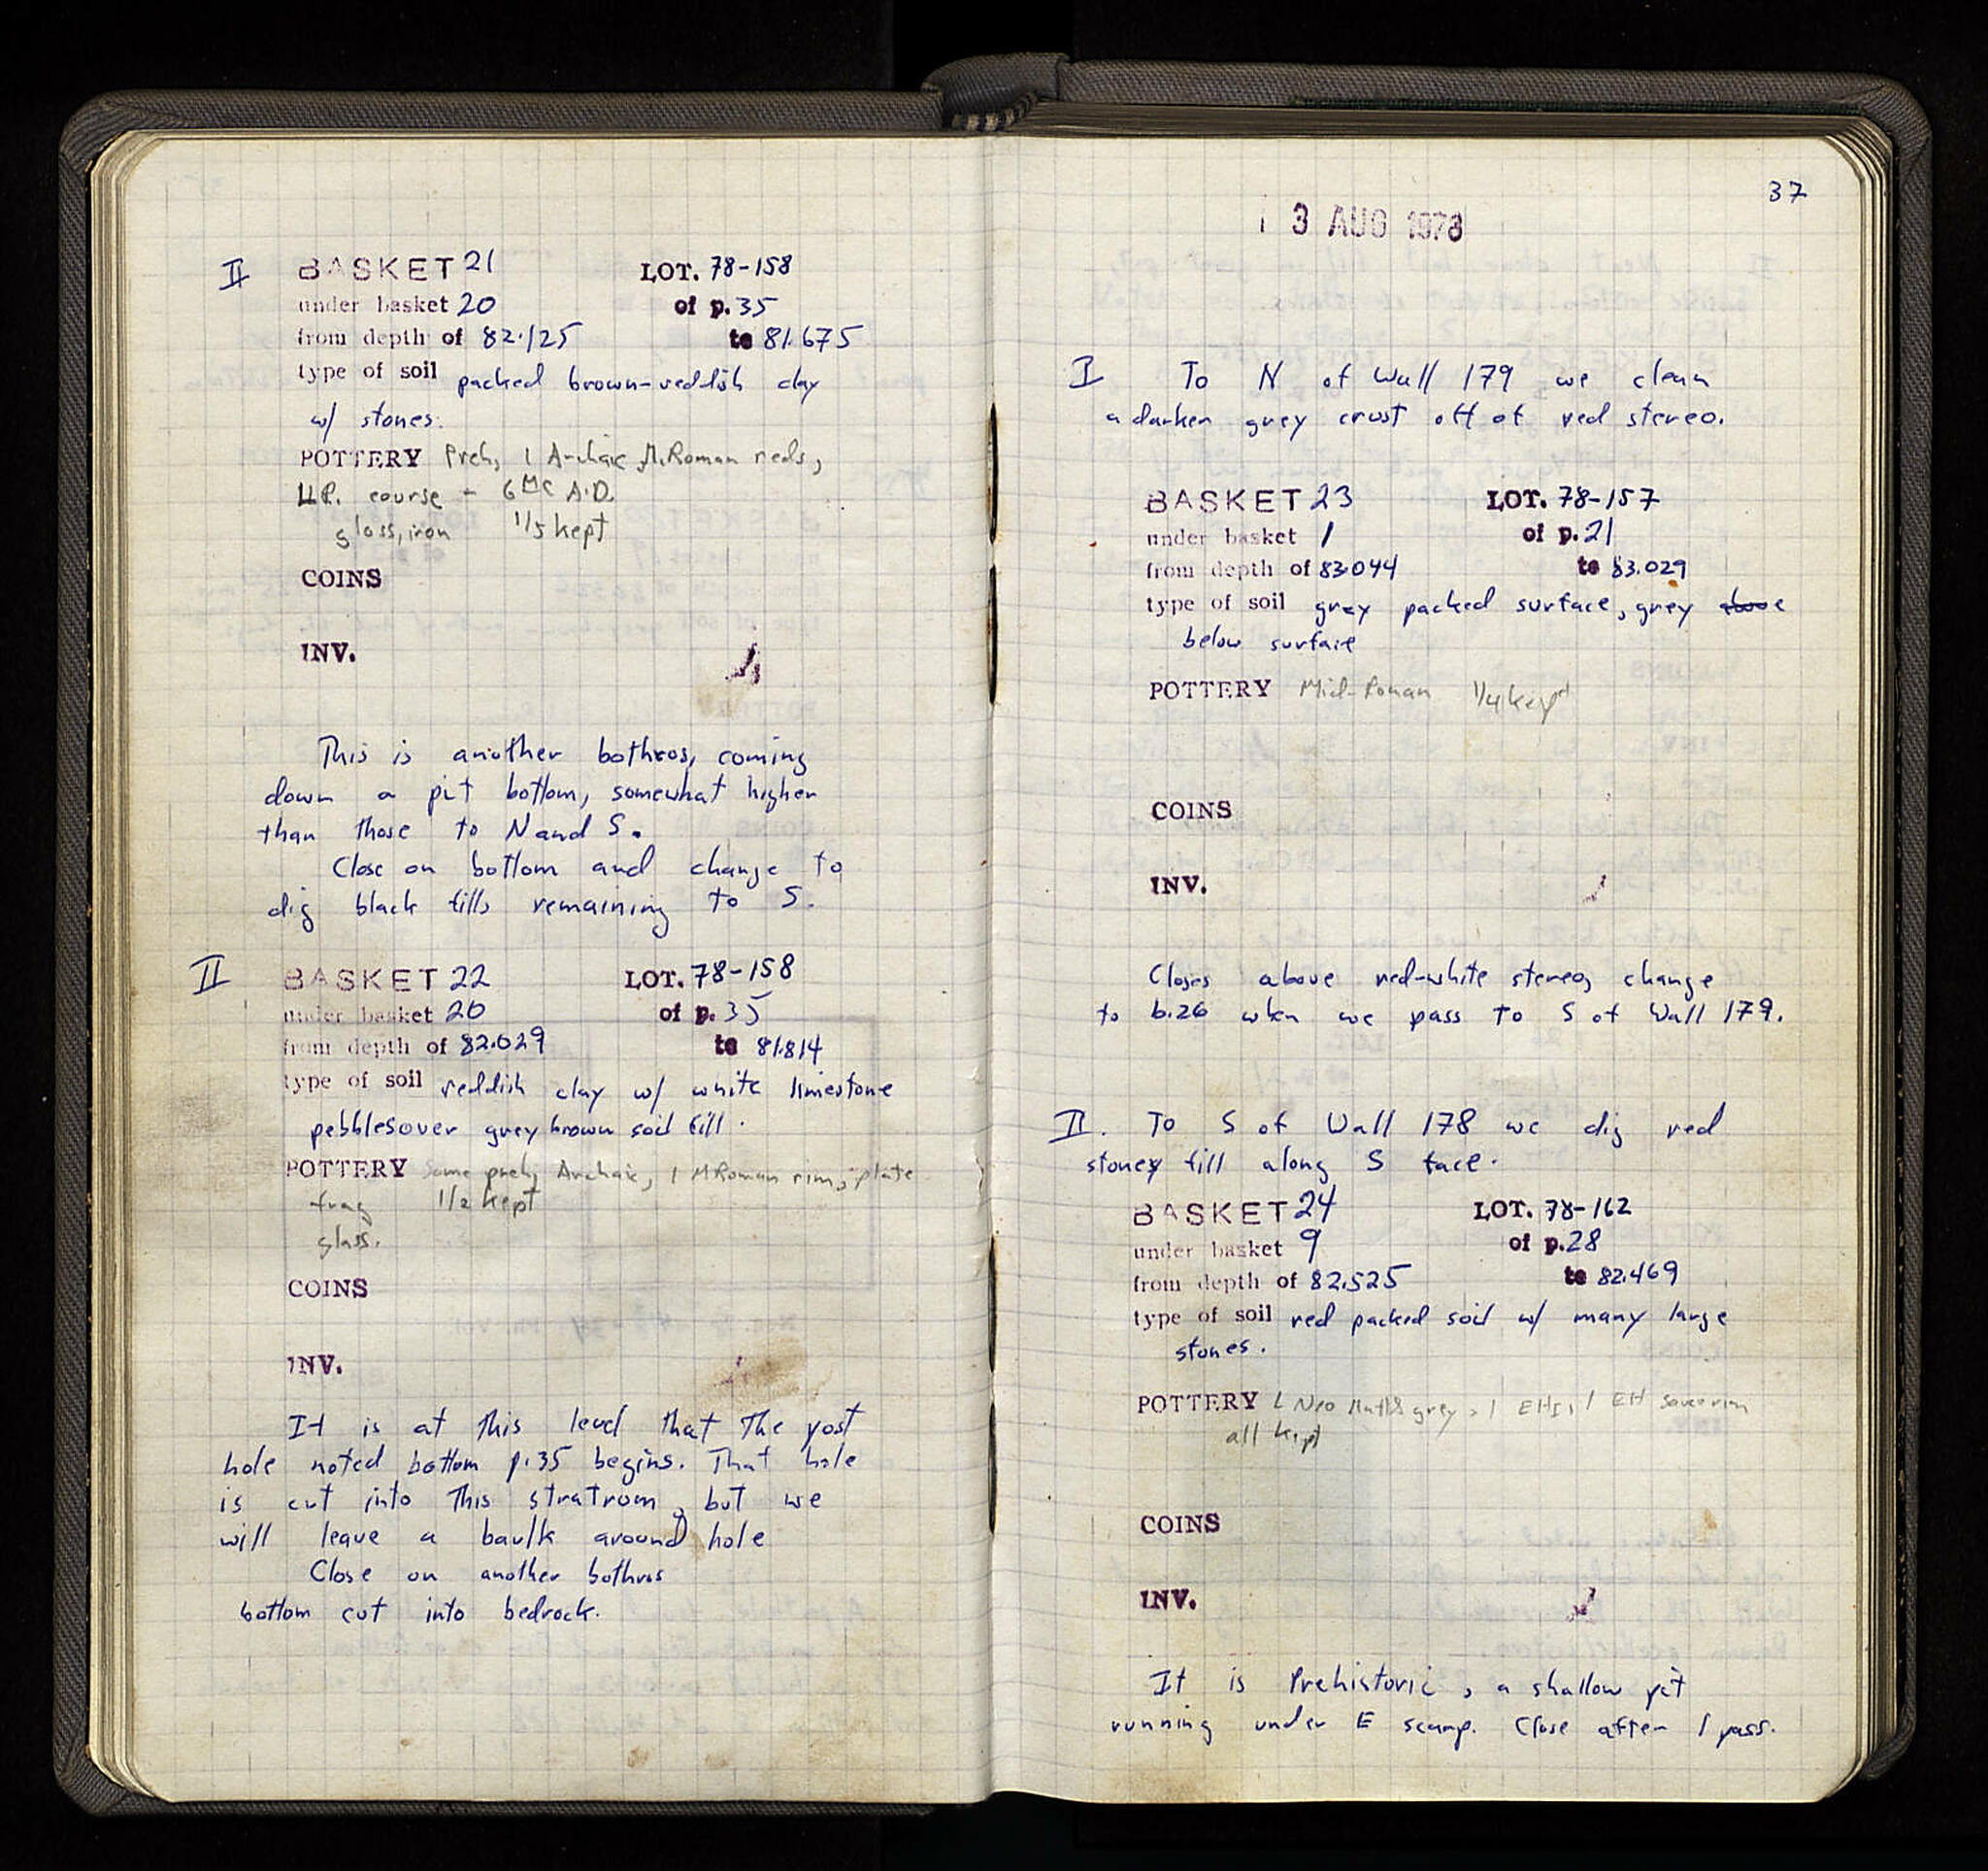 II BASKET 21 LOT. 78-158
under basket 20 of p. 35
from depth of 82.125 to 81.675
type of soil packed brown-reddish clay
w/ stones.
POTTERY Preh, 1 Archaic, M.Roman reds,
L.R. course - 6th C A.D.
glass, iron 1/5 kept
COINS
INV.
This is another bothros, coming
down a pit bottom, somewhat higher
than those to N and S.
Close on bottom and change to
dig black fills remaining to S.
II BASKET 22 LOT. 78-158
under basket 20 of p. 35
from depth of 82.029 to 81.814
type of soil reddish clay w/ white limestone
pebbles over grey brown soil fill.
POTTERY Some preh, Archaic, 1 M Roman rim, plate
frag 1/2 kept
glass.
COINS
INV.
It is at this level that the post
hole noted bottom p. 35 begins. That hole
is cut into this stratrom, but we
will leave a baulk around hole
Close on another bothros
bottom cut into bedrock.
37
3 AUG 1978
I To N of Wall 179 we clean
a darker grey crust off of red stereo.
BASKET 23 LOT. 78-157
under basket 1 of p. 21
from depth of 83.044 to 83.029
type of soil gray packed surface, grey above
below surface
POTTERY Mid-Roman 1/4 kept
COINS
INV.
Closes above red-white stereo, change
to b.26 when we pass to S of Wall 179.
II. To S of Wall 178 we dig red
stoney fill along S face.
BASKET 24 LOT. 78-162
under basket 9 of p. 28
from depth of 82.525 to 82.469
type of soil red packed soil w/ many large
stones.
POTTERY 1 Neo grey, 1 EHI, 1 EH rim
all kept
COINS
INV.
It is Prehistoric, a shallow pit
running under E scarp. Close after 1 pass.